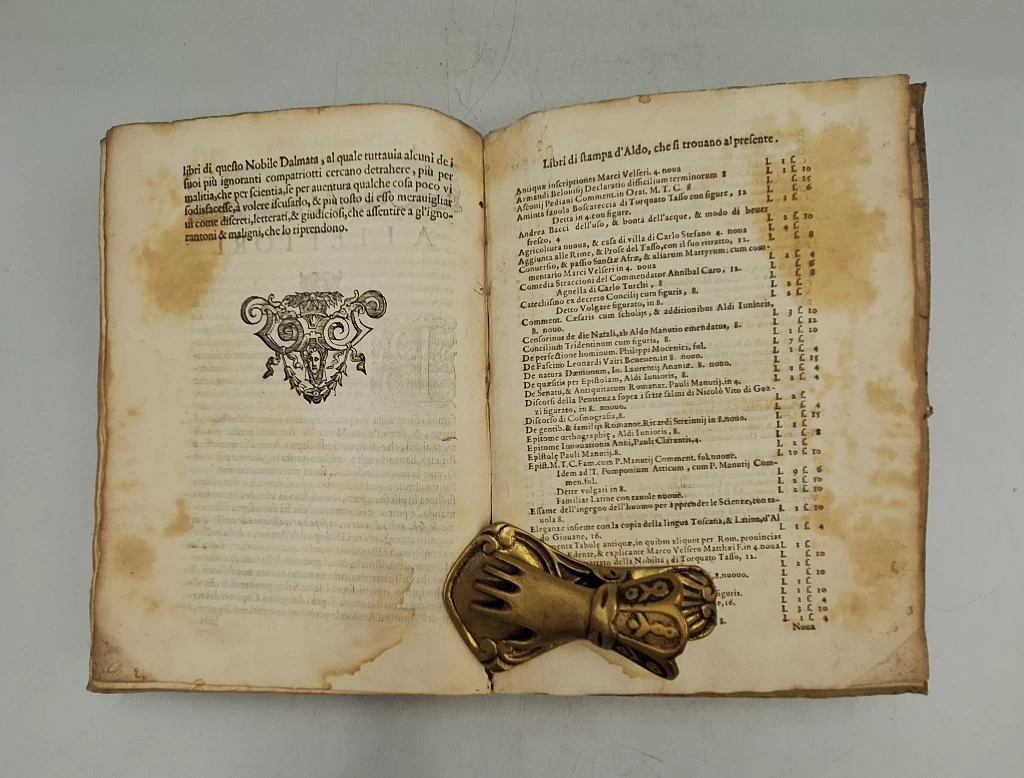 libri di questo Nobile Dalmata, al quale tuttauia alcuni de i
suoi più ignoranti compatriotti cercano detrahere, più per
malitia, che per scientia, se per auentura qualche cosa poco vi
sodisfacesse, à volere iscusarlo, & più tosto di esso merauigliar
ui come discreti, letterati, & giudiciosi, che assentire a gl'igno-
rantoni & maligni, che lo riprendono.
Libri di stampa d'Aldo, che si trouano al presente.
Antiquæ inscriptiones Marci Velseri. 4. noua
Armandi Belouisij Declaratio difficilium terminorum 8
Asconij Pediani Comment. in Orat. M. T. C. 8
Aminta fauola Boscareccia di Torquato Tasso con figure, 12
Detta in 4. con figure.
Andrea Bacci dell'uso, & bontà dell'acque, & modo di beuer
fresco, 4
Agricoltura nuoua, & casa di villa di Carlo Stefano 4. noua
Aggiunta alle Rime, & Prose del Tasso, con il suo ritratto, 12.
Conuersio, & passio Sanctæ Afræ, & aliarum Martyrum: cum com-
mentario Marci Velseri in 4. noua
Comedia Straccioni del Commendator Annibal Caro, 12.
Agnella di Carlo Turchi, 8
Catechismo ex decreto Concilij cum figuris, 8.
Detto Volgare figurato, in 8.
Comment. Cæsaris cum scholijs, & additionibus Aldi Iunioris,
8. nouo.
Censorinus de die Natali, ab Aldo Manutio emendatus, 8.
Concilium Tridentinum cum figuris, 8.
De perfectione hominum. Philippi Mocenici, fol.
De Fascino Leonardi Vairi Beneuen. in 8 nouo.
De natura Dæmonum, Io. Laurentij Ananiæ. 8. nouo.
De quæsitis per Epistolam, Aldi Iunioris, 8.
De Senatu, & Antiquitatum Romanar. Pauli Manutij. in 4.
Discorsi della Penitenza sopra i sette salmi di Nicolò Vito di Goz-
zi figurato, in 8. nuouo.
Discorso di Cosmografia, 8.
De gentib. & familijs Romanor. Ricardi Streinnij in 8. nouo.
Epitome orthographię, Aldi Iunioris, 8.
Epitome Innouationis Anni, Pauli Clarantis, 4.
Epistolę Pauli Manutij. 8.
Epist. M. T. C. Fam. cum P. Manutij Comment. fol. nuoue.
Idem ad T. Pomponium Atticum, cum P. Manutij Com-
men. fol.
Dette volgari in 8.
Familiar Latine con tauole nuoue.
Essame dell'ingegno dell'huomo per apprender le Scienze, con ta-
uola 8.
Eleganze insieme con la copia della lingua Toscana, & Latina, d'Al
do Giouane, 16.
Tabulę antiquæ, in quibus aliquot per Rom. prouincias
explicante Marco Velsero Matthæi F. in 4. noua
della Nobiltà, di Torquato Tasso, 12.
8. nuouo.
figuris.
16.
8.
Noua